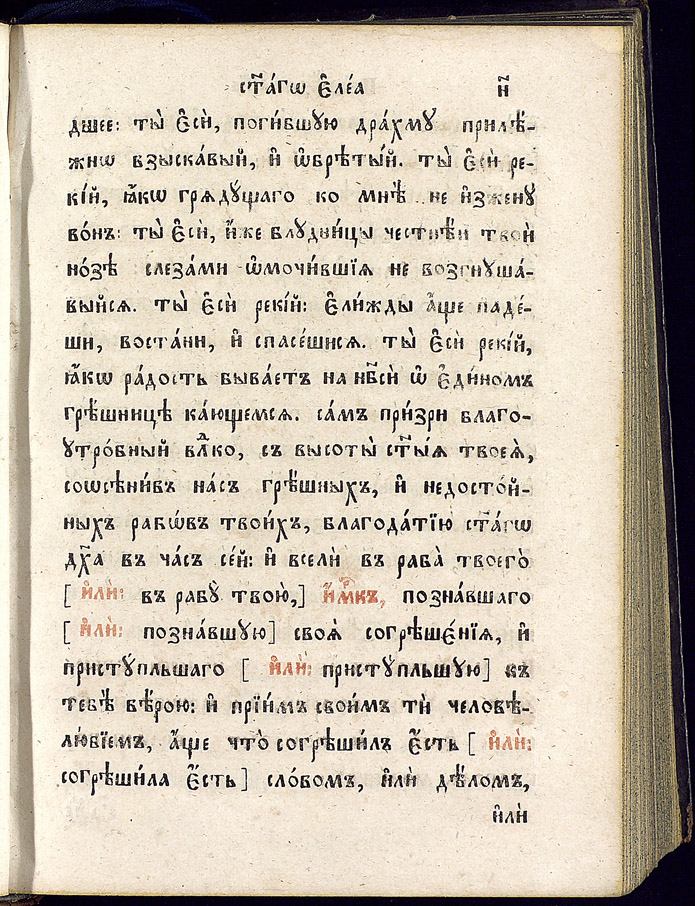 ст҃а́гѡ є҆ле́а н҃
дшее: ты̀ є҆сѝ, поги́бшꙋю дра́хмꙋ прилѣ́-
жнѡ взыска́вый, и҆ ѡ҆брѣты́й. ты̀ є҆сѝ ре-
кі́й, ꙗ҆́кѡ грѧдꙋ́щаго ко мнѣ̀ не и҆зженꙋ̀
во́нъ: ты̀ є҆сѝ, и҆́же блꙋдни́цы честнѣ́и твоѝ
но́зѣ слеза́ми ѡ҆мочи́вшїѧ не возгнꙋша́-
выйсѧ. ты̀ є҆сѝ рекі́й: є҆ли́жды а҆́ще паде́-
ши, воста́ни, и҆ спасе́шисѧ. ты̀ є҆сѝ реки́й,
ꙗ҆́кѡ ра́дость быва́етъ на нб҃сѝ ѡ҆ є҆ди́номъ
грѣ́шницѣ ка́ющемсѧ. са́мъ при́зри благо-
ꙋтро́бный влⷣко, съ высоты̀ ст҃ы́ѧ твоеѧ̀,
соѡсѣни́въ на́съ грѣ́шныхъ, и҆ недосто́й-
ныхъ рабѡ́въ твои́хъ, благода́тїю ст҃а́гѡ
дх҃а въ ча́съ се́й: и҆ вселѝ въ раба̀ твоего̀
[ и҆лѝ: въ рабꙋ̀ твою̀,] и҆́м҃къ, позна́вшаго
[ и҆лѝ: позна́вшꙋю] своѧ̀ согрѣше́нїѧ, и҆
пристꙋ́пльшаго [ и҆лѝ: пристꙋ́пльшꙋю] къ
тебѣ̀ вѣ́рою: и҆ прїи́мъ свои́мъ тѝ человѣ-
лю́бїемъ, а҆́ще что̀ согрѣши́лъ є҆́сть [ и҆лѝ:
согрѣши́ла є҆́сть] сло́вомъ, и҆лѝ дѣ́ломъ,
и҆лѝ